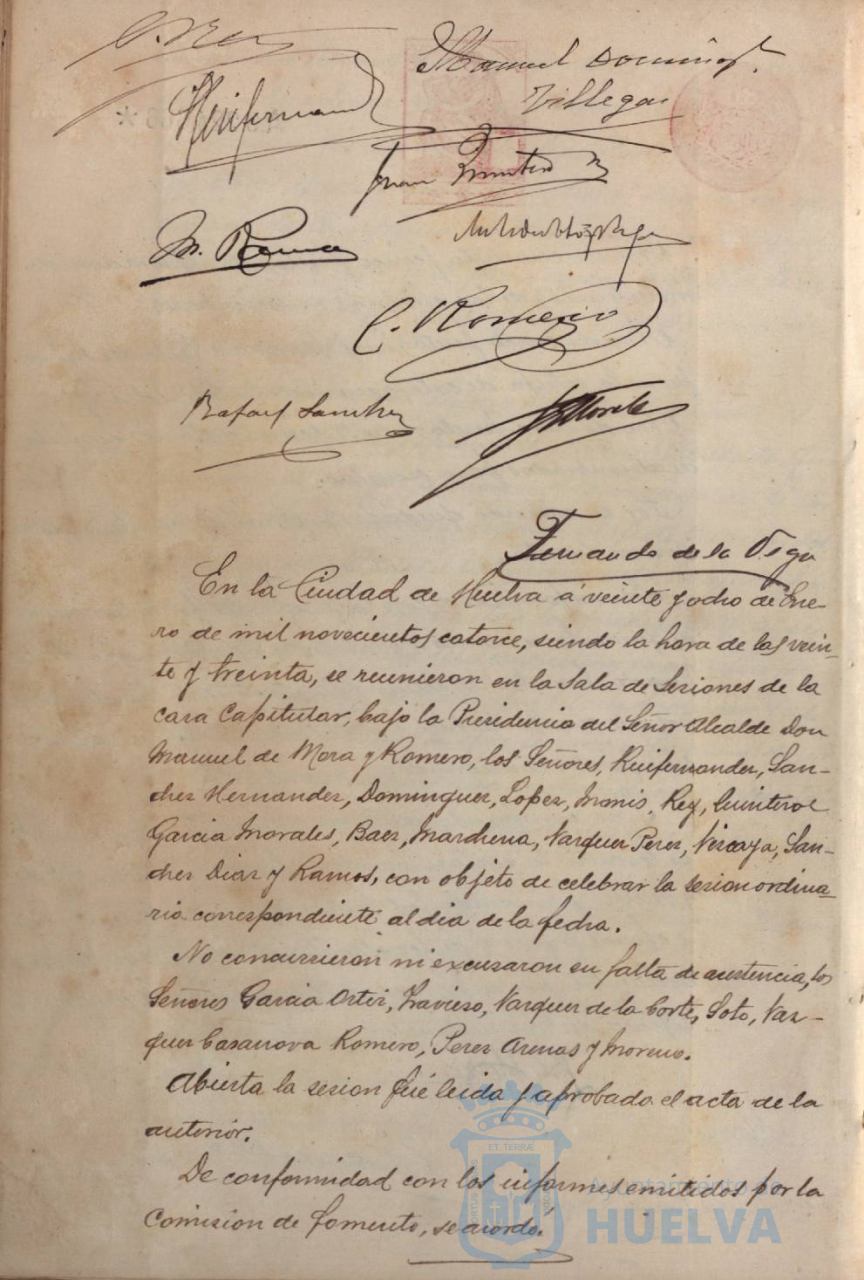 Manuel Doming.
Villegas
Ruifernandez
Juan Quintero
M. Ramos
C. Romero
Rafael Sanchez
Fernando de la Vega
En la Ciudad de Huelva á veinte y ocho de Ene-
ro de mil novecientos catorce, siendo la hora de las vein-
te y treinta, se reunieron en la Sala de Sesiones de la
casa Capitular, bajo la Presidencia del Señor Alcalde Don
Manuel de Mora y Romero, los Señores, Ruifernandez, San-
chez Hernandez, Dominguez, Lopez, Monis, Rey, Quintero
Garcia Morales, Baez, Marchena, Vazquez Perez, Vizcaya, San-
chez Diaz y Ramos, con objeto de celebrar la sesion ordina-
ria correspondiente al dia de la fecha.
No concurrieron ni excusaron su falta de asistencia, los
Señores Garcia Ortiz, Travieso, Vazquez de la Corte, Soto, Vaz-
quez Casanova Romero, Perez Arenas y Moreno.
Abierta la sesion fué leida y aprobada el acta de la
anterior.
De conformidad con los informes emitidos por la
Comision de Fomento, se acordó.
ET TERRÆ
Ayuntamiento de
HUELVA